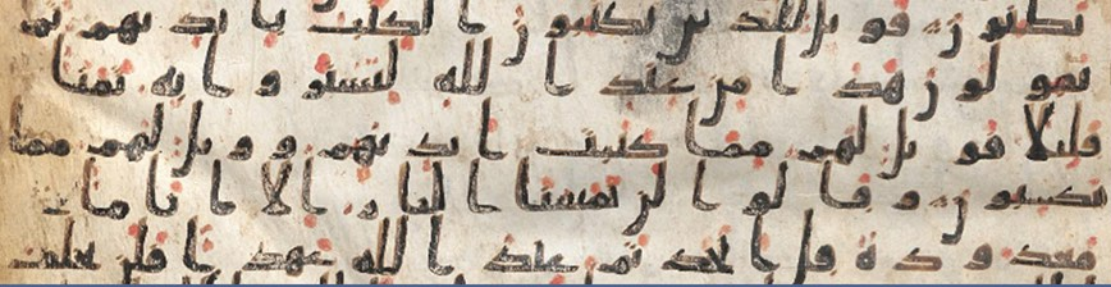 يظنون فويل للذين يكتبون الكتب بايديهم ثم
يقولون هذا من عند الله ليشتروا به ثمنا
قليلا فويل لهم مما كتبت ايديهم وويل لهم مما
يكسبون وقالوا لن تمسنا النار الا اياما
معدودة قل اتخذتم عند الله عهدا فلن يخلف